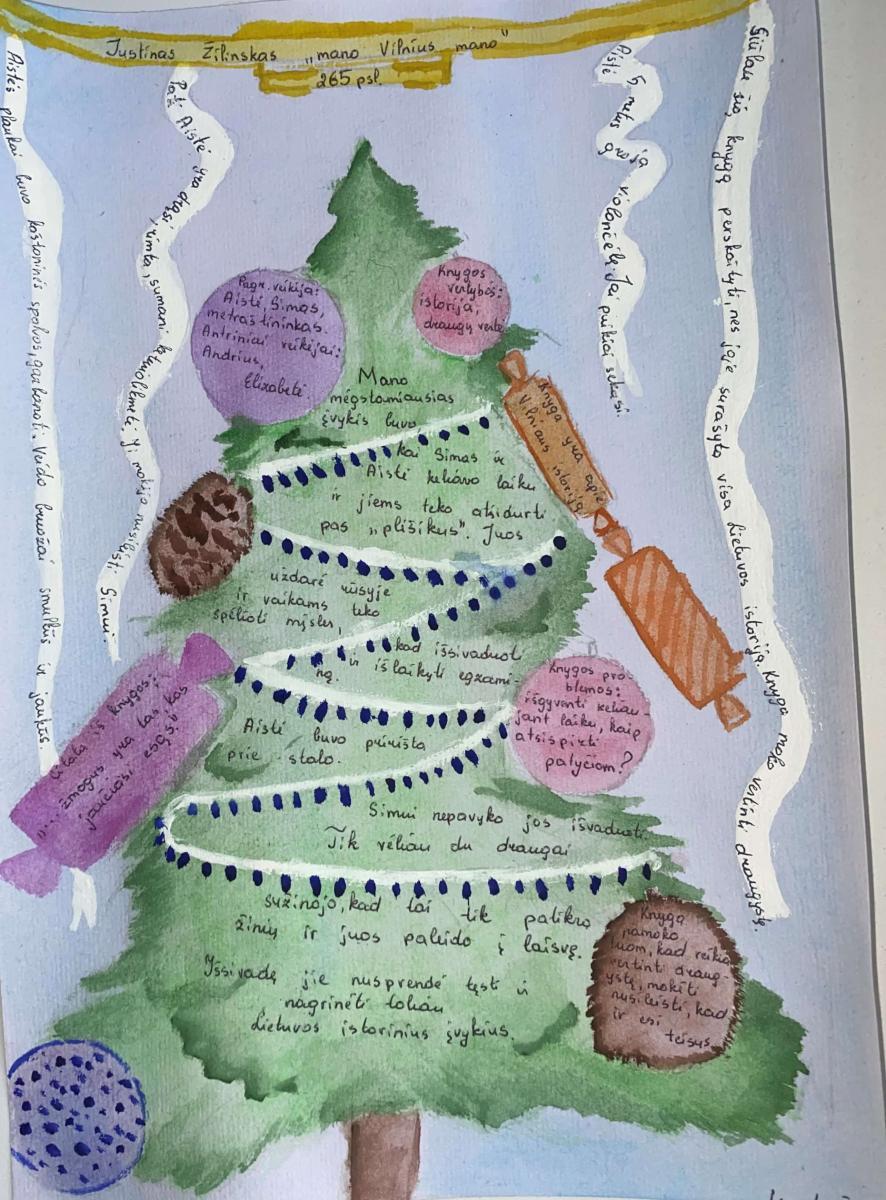 Justinas Žilinskas „mano Vilnius mano"
265 psl.
Aistės plaukai buvo kaštoninės spalvos, garbanoti. Veido bruožai smulkūs ir jaukūs.
Pati Aistė yra drąsi, rimta, sumani Ji mokėjo nusileisti Simui.
Aistė 5 metus groja violončelę. Jai puikiai sekasi.
Siūlau šią knygą perskaityti, nes joje surašyta visa Lietuvos istorija. Knyga moko vertinti draugystę.
Pagr. veikėja:
Aistė, Simas,
metraštininkas.
Antriniai veikėjai:
Andrius,
Elizabetė
Knygos
vertybės:
istorija,
draugų vertė
Knyga yra apie
Vilniaus istoriją
Mano
mėgstamiausias
įvykis buvo
kai Simas ir
Aistė keliavo laiku
ir jiems teko atsidurti
pas „plišikus". Juos
uždarė rūsyje
ir vaikams teko
spėlioti mįsles,
kad išsivaduoti
ir išlaikyti egzami-
ną.
Aistė buvo pririšta
prie stalo.
Simui nepavyko jos išvaduoti.
Tik vėliau du draugai
sužinojo, kad tai tik patikra
žinių ir juos paleido į laisvę.
Išsivadę jie nusprendė tęsti ir
nagrinėti toliau
Lietuvos istorinius įvykius.
Citata iš knygos:
„... žmogus yra tas kas
jaučiasi esąs."
Knygos pro
blemos:
išgyventi keliau-
jant laiku, kaip
atsispirti
patyčiom?
Knyga
pamoko
tuom, kad reikia
vertinti draug-
ystę, mokėti
nusileisti, kad
ir esi
teisus.